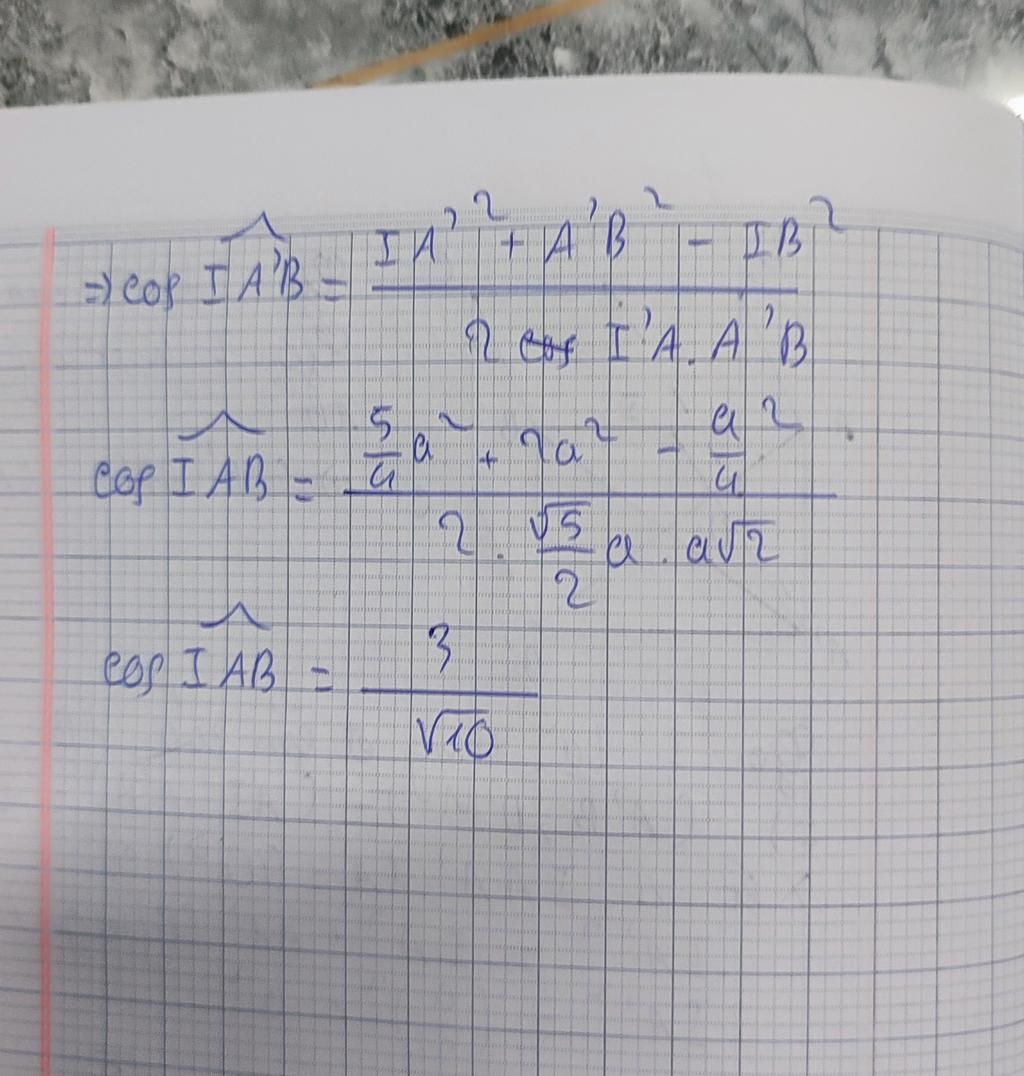 ⇒ cos IA'B = (IA'² + A'B² - IB²) / (2 I'A . A'B)
cos IAB = (5/4 a² + 2a² - a²/4) / (2 . √5/2 a . a√2)
cos IAB = 3/√10